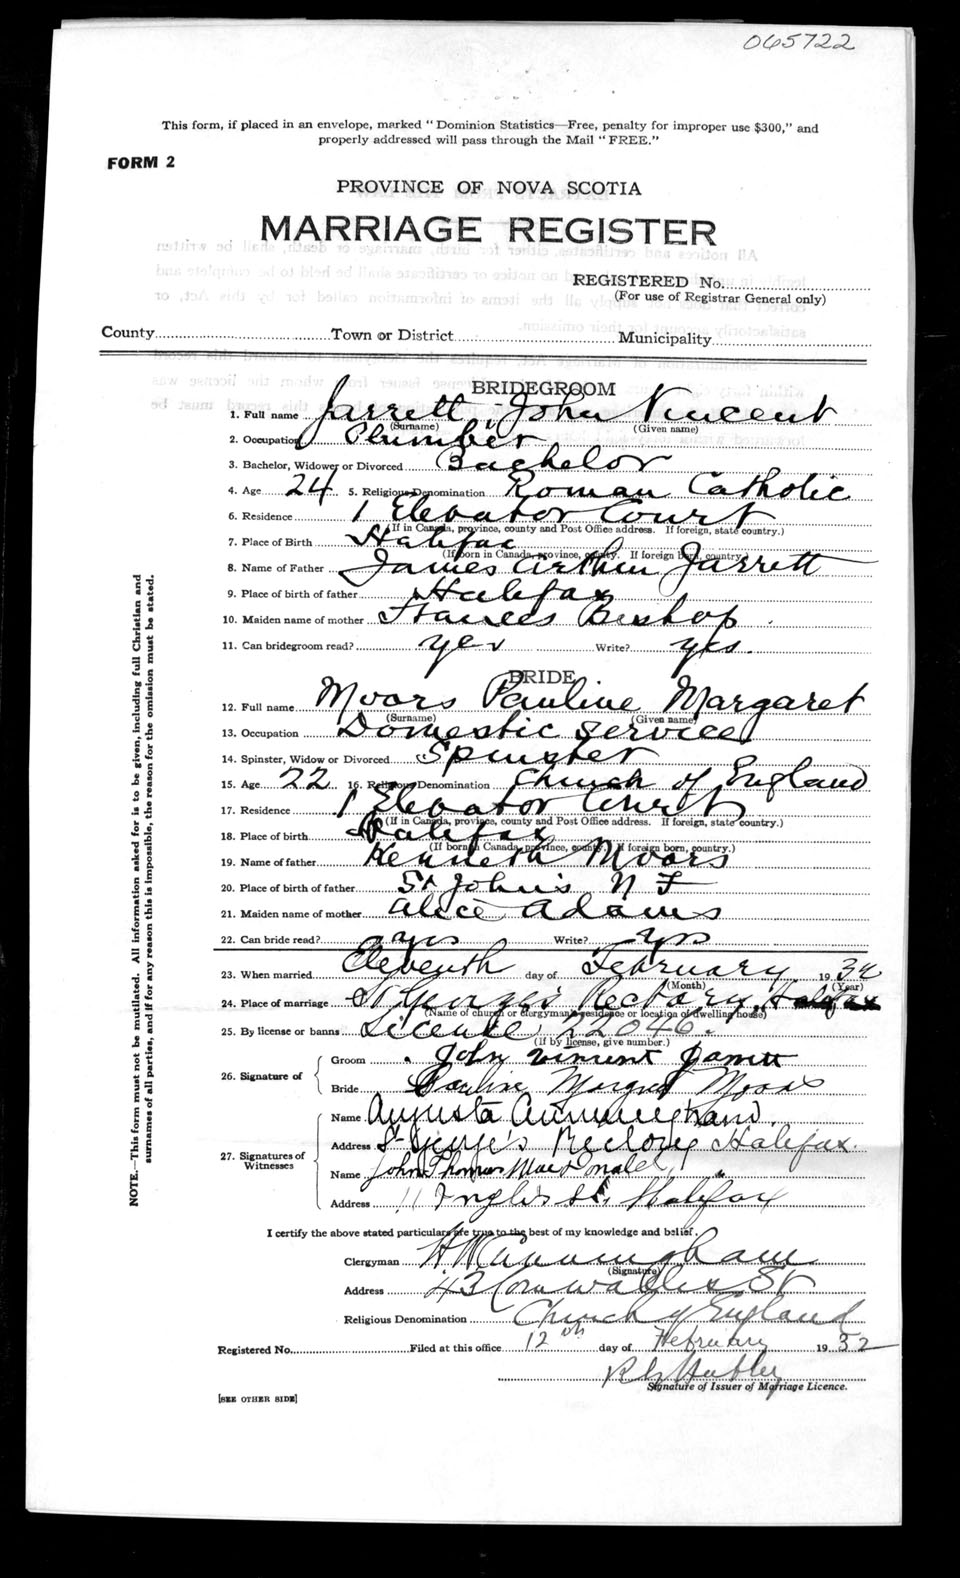 065722
This form, if placed in an envelope, marked "Dominion Statistics—Free, penalty for improper use $300," and
properly addressed will pass through the Mail "FREE."
FORM 2
PROVINCE OF NOVA SCOTIA
MARRIAGE REGISTER
REGISTERED No.
(For use of Registrar General only)
County Town or District Municipality
BRIDEGROOM
1. Full name Jarrett, John Vincent
(Surname) (Given name)
2. Occupation Plumber
3. Bachelor, Widower or Divorced Bachelor
4. Age 24 5. Religious Denomination Roman Catholic
6. Residence 1 Elevator Court
(If in Canada, province, county and Post Office address. If foreign, state country.)
7. Place of Birth Halifax
(If born in Canada, province, county. If foreign born, country.)
8. Name of Father James Arthur Jarrett
9. Place of birth of father Halifax
10. Maiden name of mother Frances Bishop
11. Can bridegroom read? yes Write? yes.
BRIDE
12. Full name Moors Pauline Margaret
(Surname) (Given name)
13. Occupation Domestic Service
14. Spinster, Widow or Divorced Spinster
15. Age 22 16. Religious Denomination Church of England
17. Residence 1 Elevator Court
(If in Canada, province, county and Post Office address. If foreign, state country.)
18. Place of birth Halifax
(If born in Canada, province, county. If foreign born, country.)
19. Name of father Kenneth Moors
20. Place of birth of father St John's N F
21. Maiden name of mother Alice Adams
22. Can bride read? yes Write? yes
23. When married Eleventh day of February 1932
(Month) (Year)
24. Place of marriage St George's Rectory, Halifax
(Name of church or clergyman's residence or location of dwelling house)
25. By license or banns License 22046.
(If by license, give number.)
26. Signature of
Groom John Vincent Jarrett
Bride Pauline Margret Moors
27. Signatures of Witnesses
Name Augusta Cunningham.
Address St George's Rectory Halifax.
Name John Thomas MacDonald
Address 11 Inglis St, Halifax
I certify the above stated particulars are true to the best of my knowledge and belief.
Clergyman H W Cunningham
(Signature)
Address 43 Cornwallis St
Religious Denomination Church of England
Registered No. Filed at this office 12th day of February 1932
Signature of Issuer of Marriage Licence.
[SEE OTHER SIDE]
NOTE.—This form must not be mutilated. All information asked for is to be given, including full Christian and
surnames of all parties, and if for any reason this is impossible, the reason for the omission must be stated.